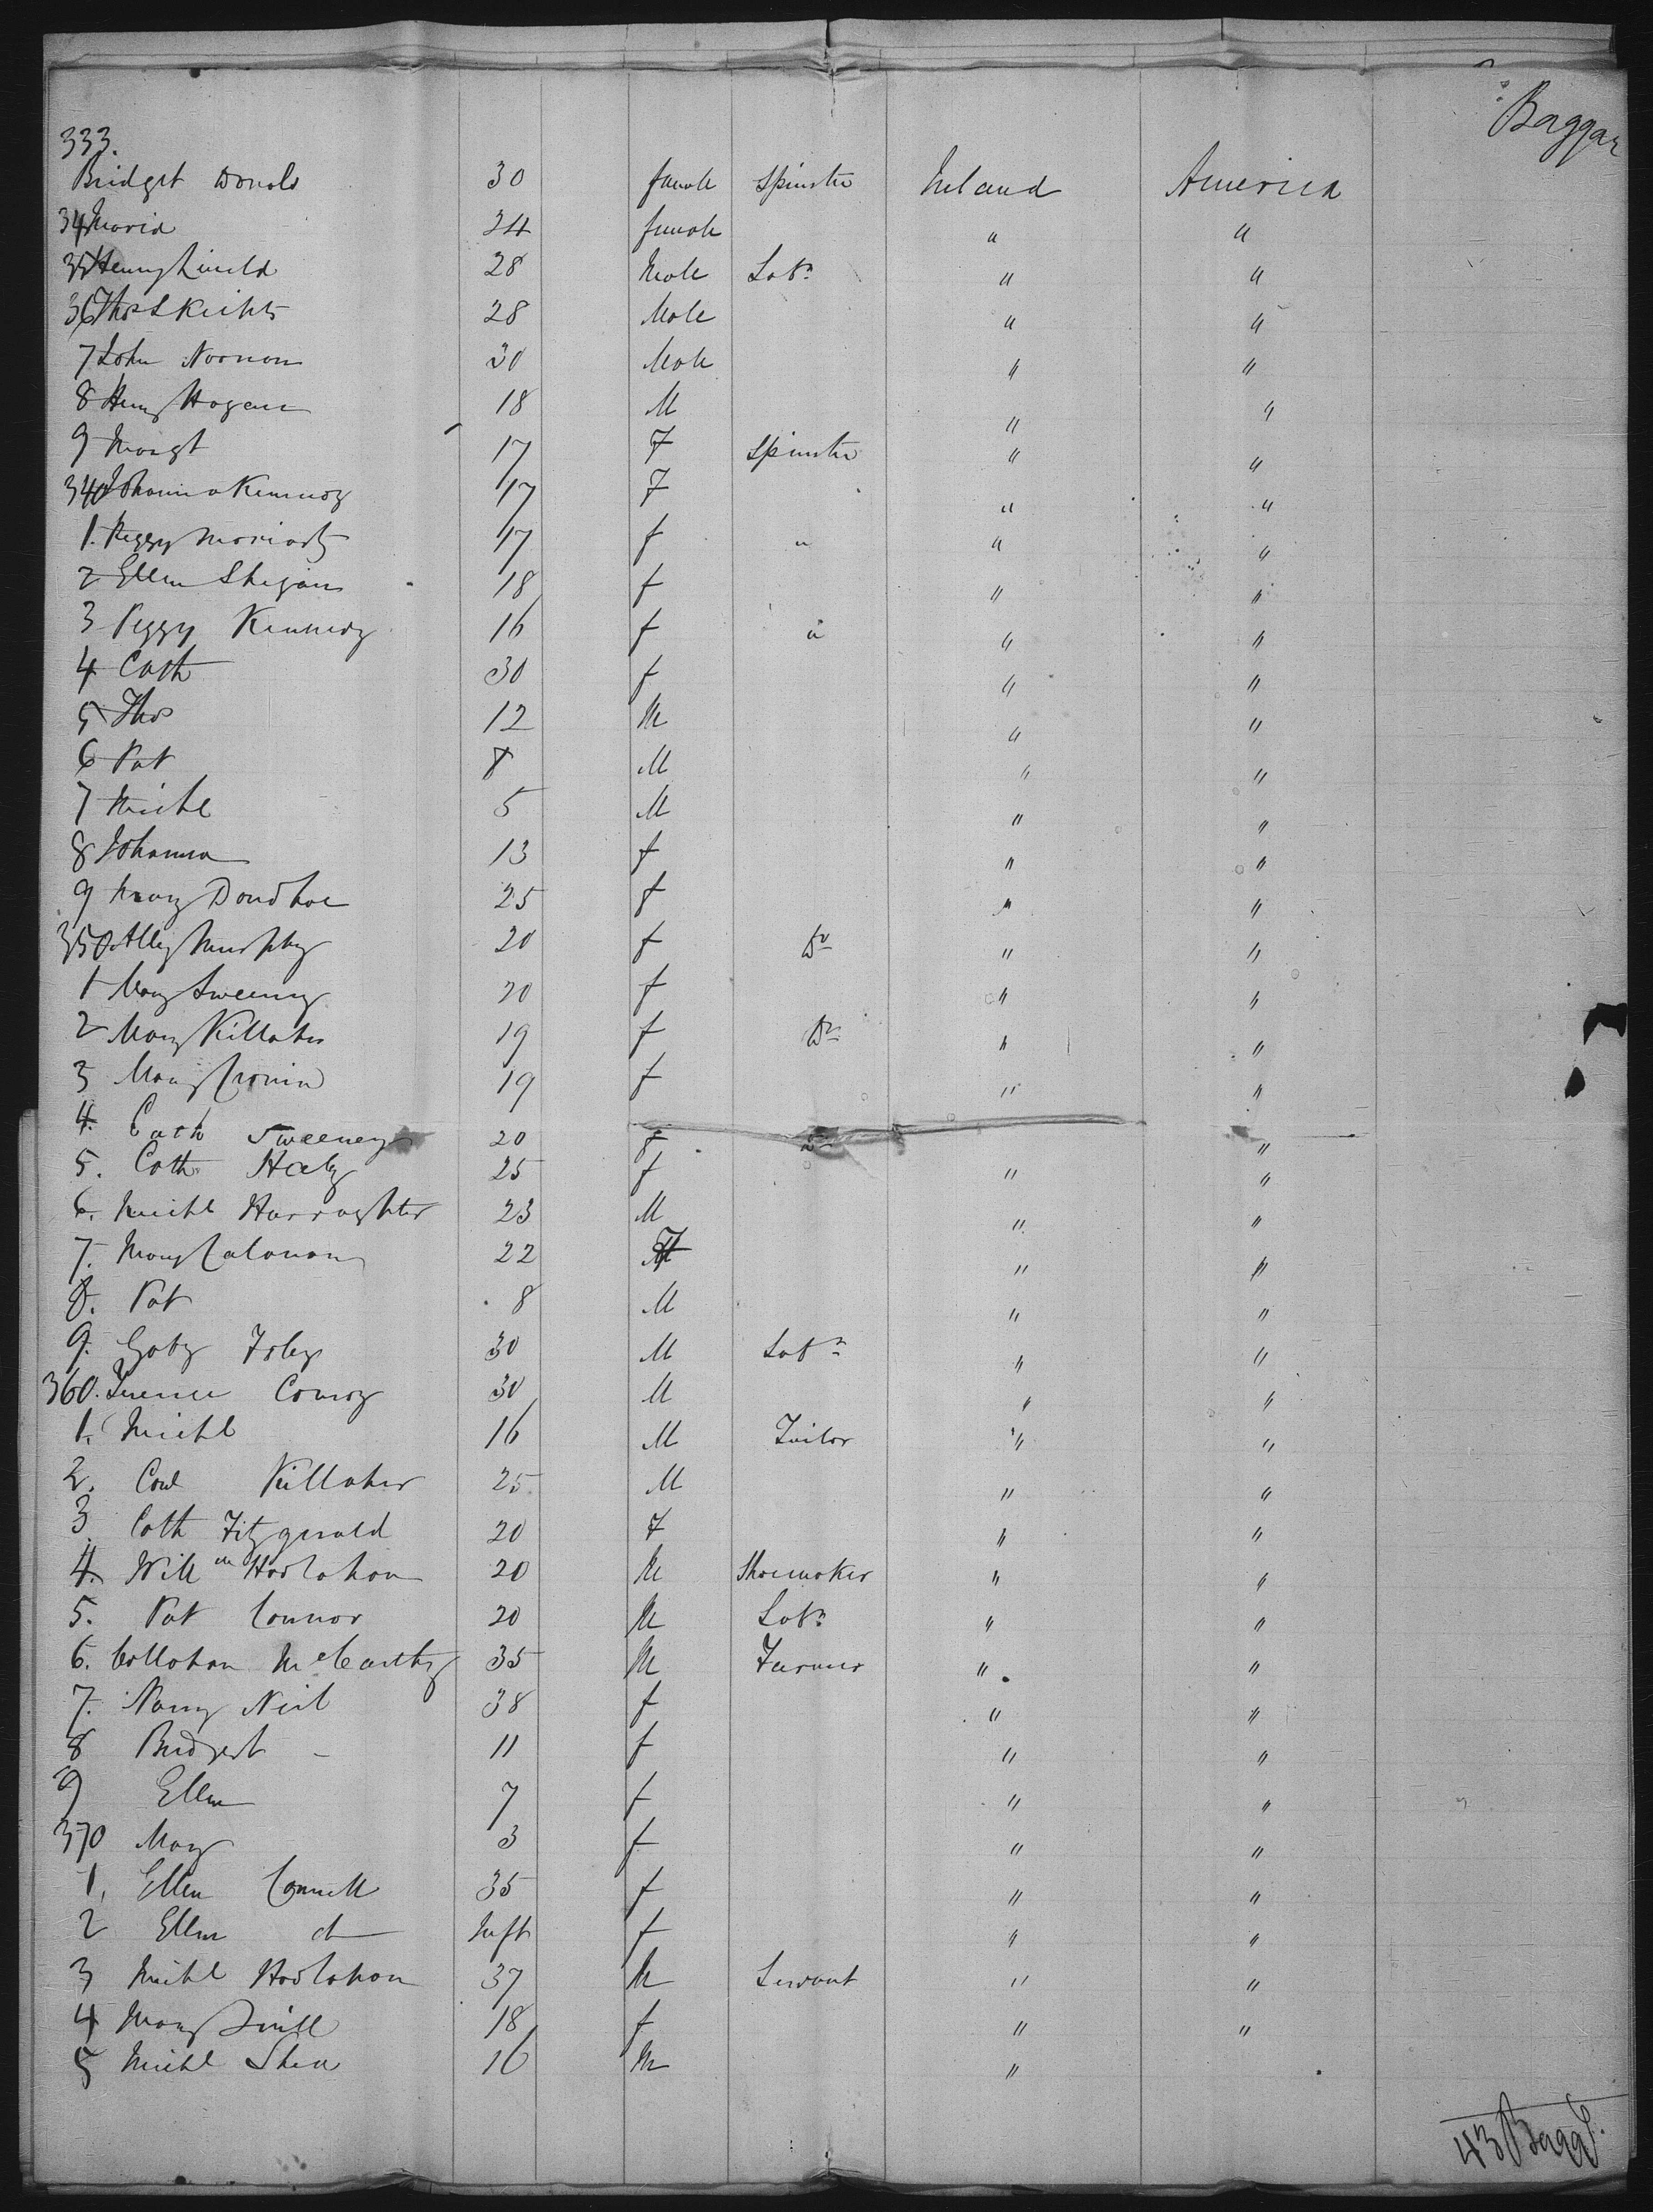 Baggag
333.
Bridget Donald 30 female Spinster Ireland America
34 Maria 24 female " "
35 Henry 28 Male Labr " "
36 Thos 28 Male " "
7 John Noonan 30 Male " "
8 Henry Hogan 18 M " "
9 Margt 17 F Spinster " "
340 Johanna Kennedy 17 F " "
1. Peggy Moriarty 17 f " " "
2 Ellen 18 f " "
3 Peggy Kennedy 16 f " " "
4 Cath 30 f " "
5 Thos 12 M " "
6 Pat 8 M " "
7 Michl 5 M " "
8 Johanna 13 f " "
9 Mary Donohoe 25 f " "
350 Alley Murphy 20 f Do " "
1 Mary Sweeney 20 f " "
2 Mary Killaher 19 f Do " "
3 Mary Cronin 19 f " "
4. Cath Sweeney 20 f Do "
5. Cath Haly 25 f " "
6. Michl Harraghter 23 M " "
7. Mary Calanan 22 F " "
8. Pat 8 M " "
9. Foley 30 M Labr " "
360. Conroy 30 M " "
1. Michl 16 M Tailor " "
2. Killaher 25 M " "
3 Cath Fitzgerald 20 F " "
4. Willm Hoolahan 20 M Shoemaker " "
5. Pat Connor 20 M Labr " "
6. Callahan McCarthy 35 M Farmer " "
7. Nancy Neil 38 f " "
8 Bridget 11 f " "
9 Ellen 7 f " "
370 Mary 3 f " "
1, Ellen Connell 35 f " "
2 Ellen do Inft f " "
3 Michl Hoolahan 37 M Servant " "
4 Mary 18 f " "
5 Michl Shea 16 M "
43 Bagg